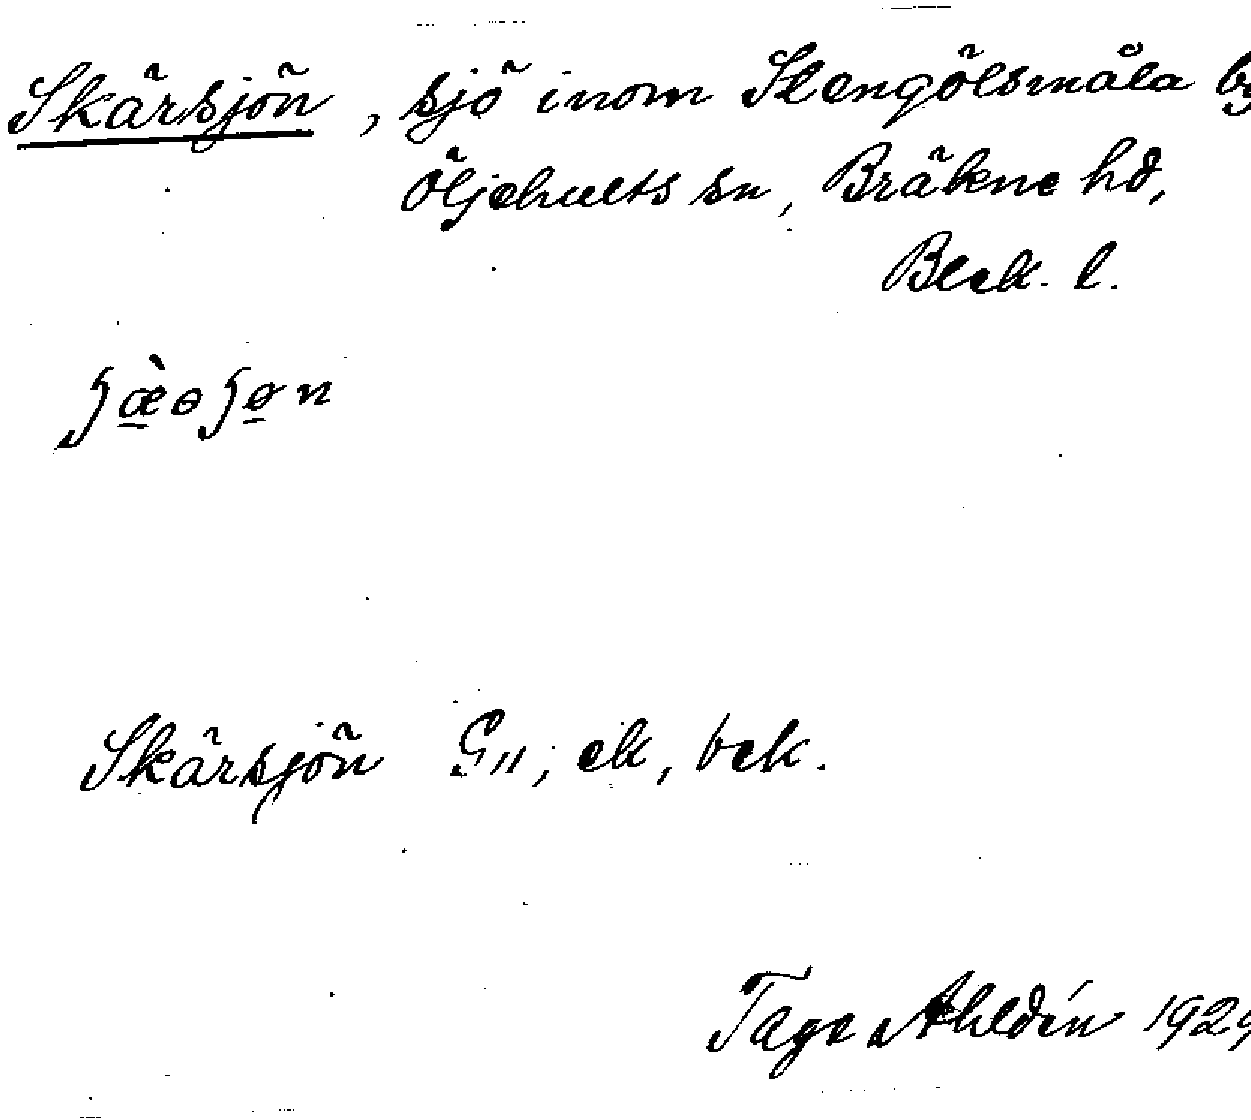 Skärsjön, sjö inom Stengölsmåla
Öljehults sn, Bräkne hd,
Blek. l.
Skärsjön G11; ek, bek.
Tage Ahldén